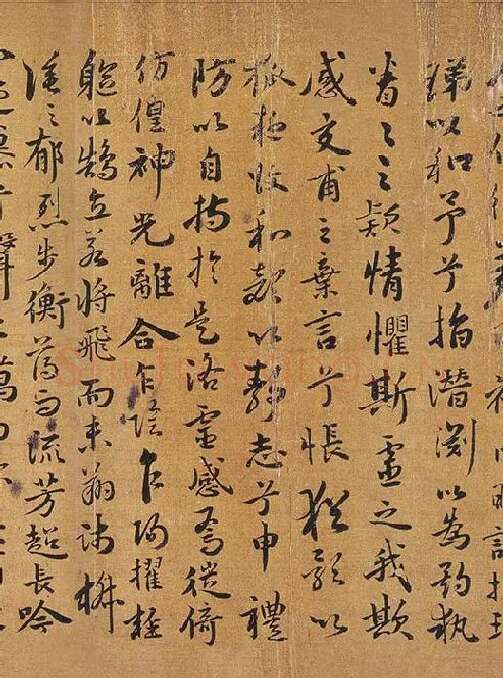 珶以和予兮指潛渕以為期執
眷々之款情懼斯靈之我欺
感交甫之棄言兮悵猶豫以
狐疑收和顏以靜志兮申禮
防以自持於是洛靈感焉徙倚
仿偟神光離合乍陰乍陽擢輕
軀以鵠立若將飛而未翔踐椒
塗之郁烈步衡薄而流芳超長吟